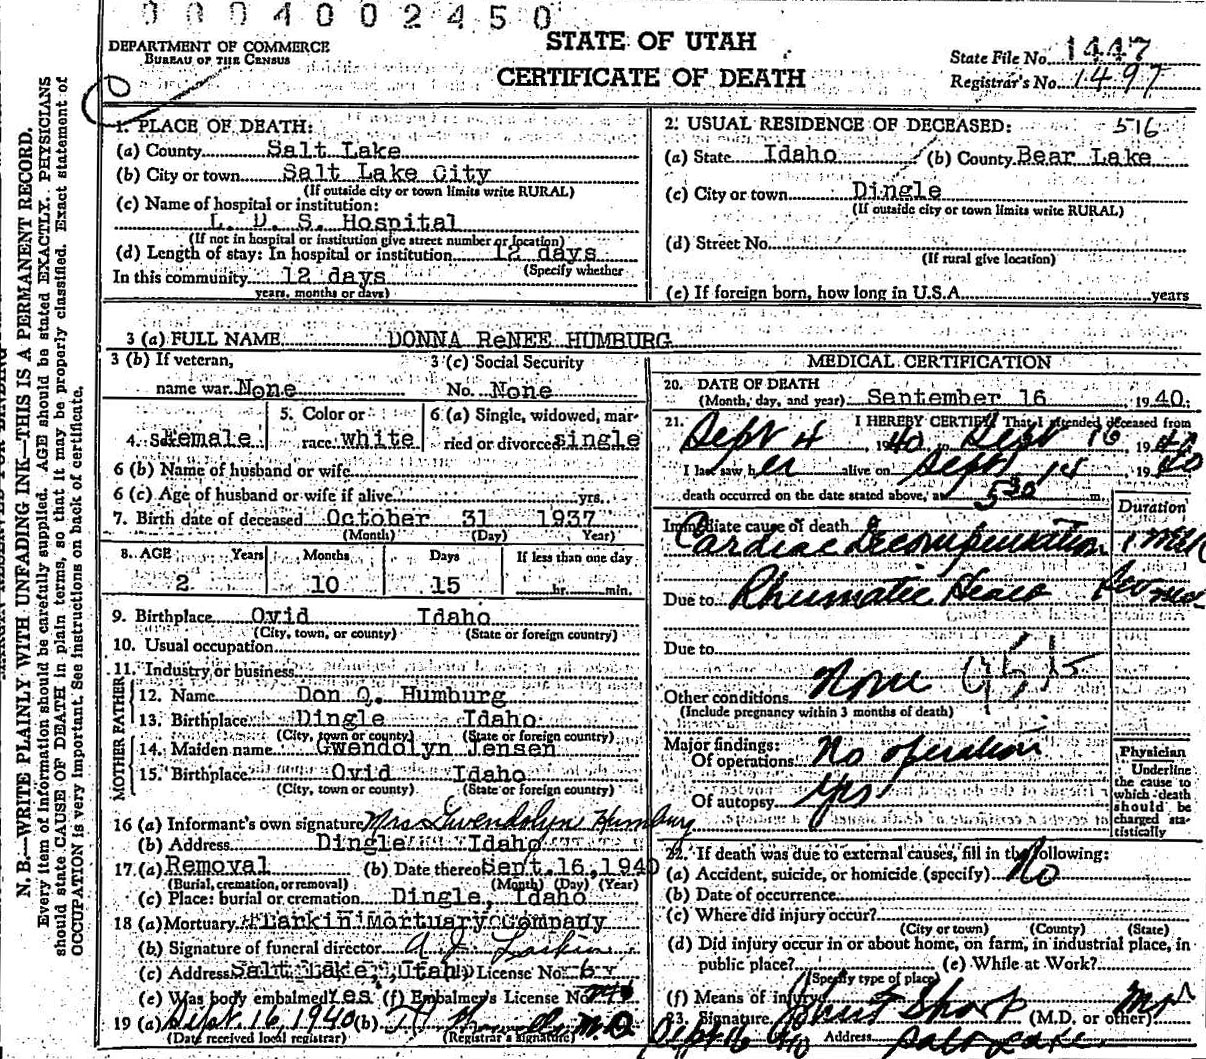 0004002450
DEPARTMENT OF COMMERCE
BUREAU OF THE CENSUS
STATE OF UTAH
CERTIFICATE OF DEATH
State File No. 1447
Registrar's No. 1497
N. B.—WRITE PLAINLY WITH UNFADING INK—THIS IS A PERMANENT RECORD.
Every item of information should be carefully supplied. AGE should be stated EXACTLY. PHYSICIANS
should state CAUSE OF DEATH in plain terms, so that it may be properly classified. Exact statement of
OCCUPATION is very important. See instructions on back of certificate.
1. PLACE OF DEATH:
(a) County Salt Lake
(b) City or town Salt Lake City
(If outside city or town limits write RURAL)
(c) Name of hospital or institution:
L. D. S. Hospital
(If not in hospital or institution give street number or location)
(d) Length of stay: In hospital or institution 12 days
(Specify whether
In this community 12 days
years, months or days)
2. USUAL RESIDENCE OF DECEASED: 516
(a) State Idaho (b) County Bear Lake
(c) City or town Dingle
(If outside city or town limits write RURAL)
(d) Street No.
(If rural give location)
(e) If foreign born, how long in U.S.A. years
3 (a) FULL NAME DONNA ReNEE HUMBURG
3 (b) If veteran, 3 (c) Social Security
name war None No. None
4. Sex Female 5. Color or race white 6 (a) Single, widowed, married or divorced single
6 (b) Name of husband or wife
6 (c) Age of husband or wife if alive yrs.
7. Birth date of deceased October 31 1937
(Month) (Day) (Year)
8. AGE Years Months Days If less than one day
2 10 15 hr. min.
9. Birthplace Ovid Idaho
(City, town, or county) (State or foreign country)
10. Usual occupation
11. Industry or business
FATHER
12. Name Don Q. Humburg
13. Birthplace Dingle Idaho
(City, town or county) (State or foreign country)
MOTHER
14. Maiden name Gwendolyn Jensen
15. Birthplace Ovid Idaho
(City, town or county) (State or foreign country)
16 (a) Informant's own signature Mrs Gwendolyn Humburg
(b) Address Dingle Idaho
17. (a) Removal (b) Date thereof Sept. 16, 1940
(Burial, cremation, or removal) (Month) (Day) (Year)
(c) Place: burial or cremation Dingle, Idaho
18 (a) Mortuary Larkin Mortuary Company
(b) Signature of funeral director A J Larkin
(c) Address Salt Lake, Utah (d) License No.
(e) Was body embalmed Yes (f) Embalmer's License No.
19 (a) Sept. 16, 1940 (b) M.D.
(Date received local registrar) (Registrar's signature)
MEDICAL CERTIFICATION
20. DATE OF DEATH
(Month, day, and year) September 16 1940
21. I HEREBY CERTIFY That I attended deceased from
Sept 4, 1940 to Sept 16, 1940
I last saw her alive on Sept 15 1940
death occurred on the date stated above, at 5 30 m.
Duration
Immediate cause of death
Cardiac Decompensation
Due to Rhumatic Heart
Due to
Other conditions None
(Include pregnancy within 3 months of death)
Major findings:
Of operations No operation
Of autopsy Yes
Physician
Underline
the cause to
which death
should be
charged sta-
tistically
22. If death was due to external causes, fill in the following:
(a) Accident, suicide, or homicide (specify) No
(b) Date of occurrence
(c) Where did injury occur?
(City or town) (County) (State)
(d) Did injury occur in or about home, on farm, in industrial place, in
public place? (e) While at Work?
(Specify type of place)
(f) Means of injury
23. Signature (M.D. or other) MD
Sept 16 1940 Address Salt Lake